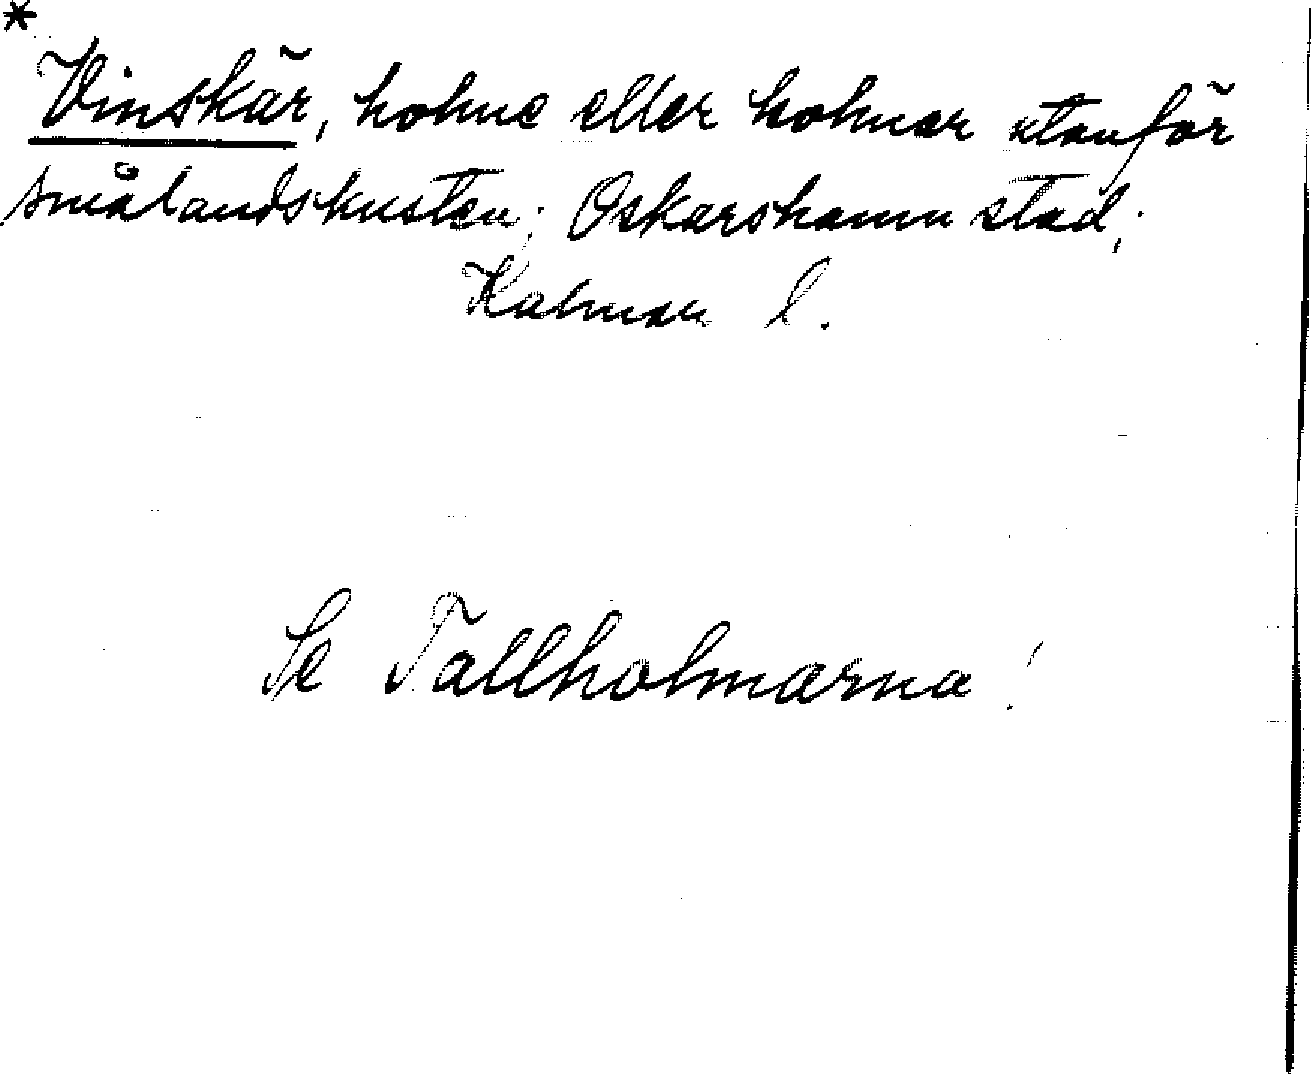 *
Vinskär, holme eller holmar utanför
smålandskusten; Oskarshamn stad;
Kalmar l.
Se Tallholmarna!